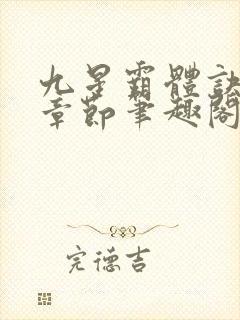 九星霸體訣
章節筆趣閣
完德吉